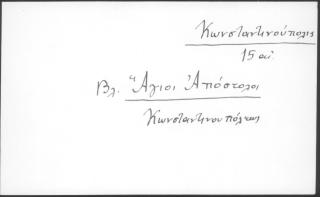 Κωνσταντινούπολις
15 αἰ.
Βλ. Ἅγιοι Ἀπόστολοι
Κωνσταντινουπόλεως